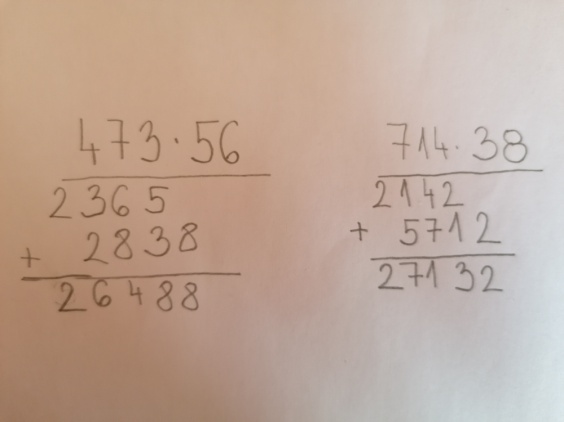 473·56
2365
+ 2838
26488
714·38
2142
+ 5712
27132